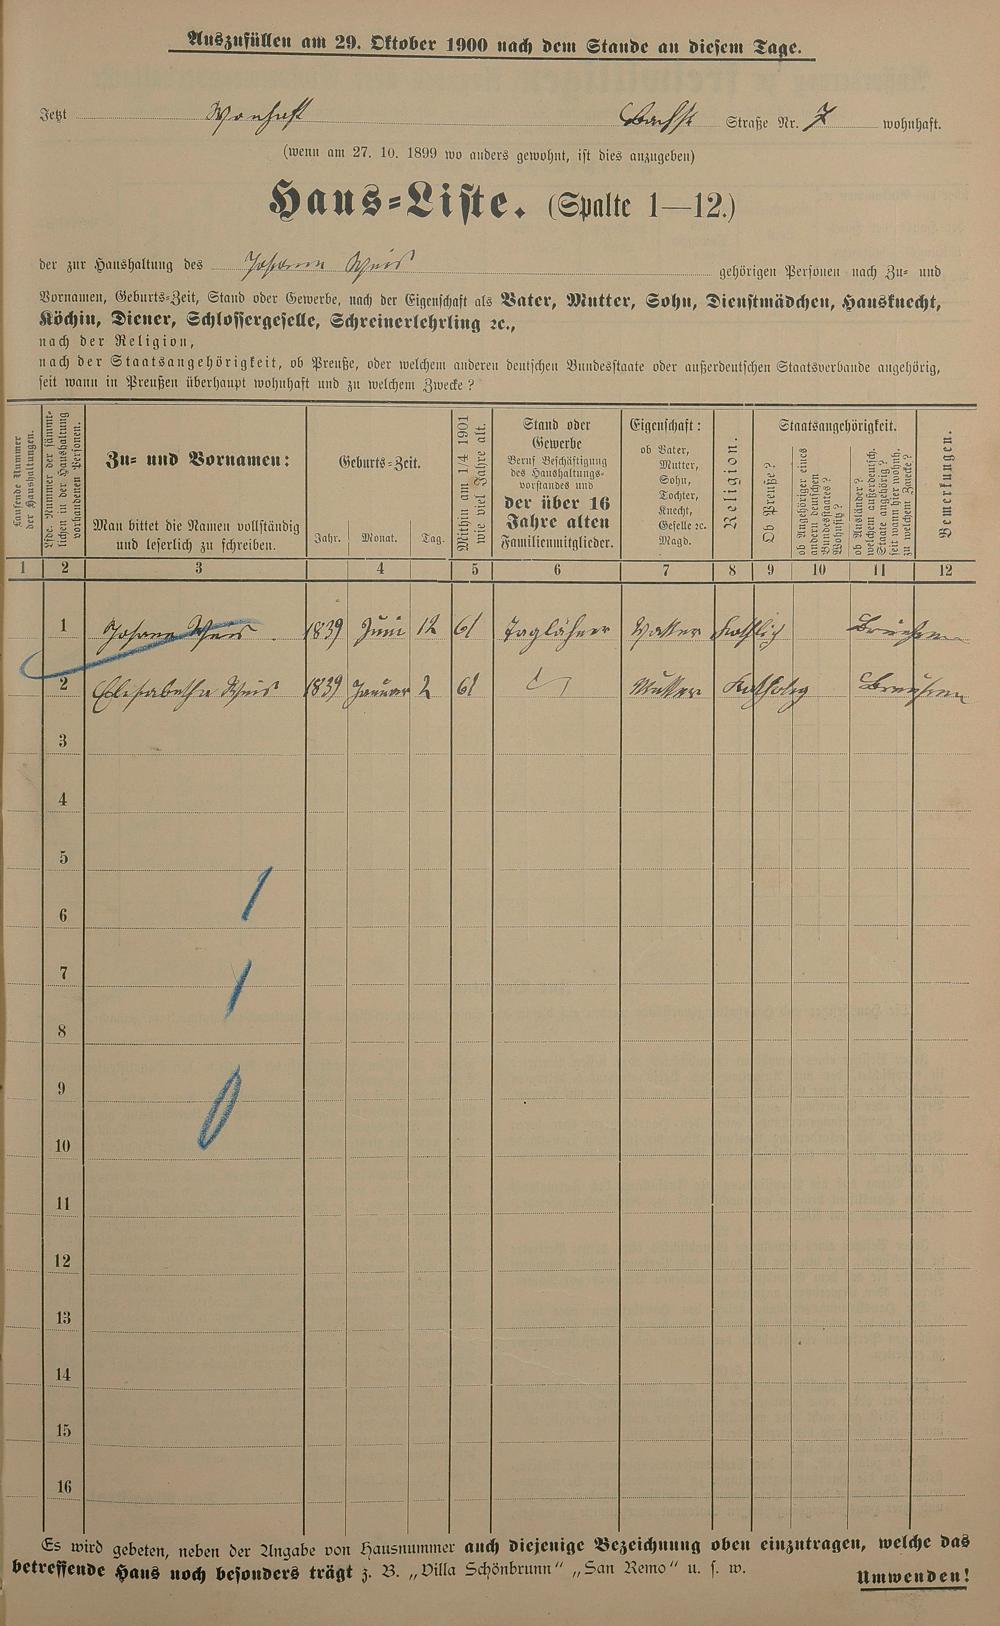 Auszufüllen am 29. Oktober 1900 nach dem Stande an diesem Tage.
Jetzt Wonhaft Bachst Straße Nr. 7 wohnhaft.
(wenn am 27. 10. 1899 wo anders gewohnt, ist dies anzugeben)
Haus-Liste. (Spalte 1—12.)
der zur Haushaltung des Johann Weis gehörigen Personen nach Zu- und
Vornamen, Geburts-Zeit, Stand oder Gewerbe, nach der Eigenschaft als Vater, Mutter, Sohn, Dienstmädchen, Hausknecht,
Köchin, Diener, Schlossergeselle, Schreinerlehrling ꝛc.,
nach der Religion,
nach der Staatsangehörigkeit, ob Preuße, oder welchem anderen deutschen Bundesstaate oder außerdeutschen Staatsverbande angehörig,
seit wann in Preußen überhaupt wohnhaft und zu welchem Zwecke?
Laufende Nummer
der Haushaltungen.
Lfde. Nummer der sämmt-
lichen in der Haushaltung
vorhandenen Personen.
Zu- und Vornamen:
Man bittet die Namen vollständig
und leserlich zu schreiben.
Geburts-Zeit.
Jahr. Monat. Tag.
Mithin am 1/4 1901
wie viel Jahre alt.
Stand oder
Gewerbe
Beruf Beschäftigung
des Haushaltungs-
vorstandes und
der über 16
Jahre alten
Familienmitglieder.
Eigenschaft:
ob Vater,
Mutter,
Sohn,
Tochter,
Knecht,
Geselle ꝛc.
Magd.
Religion.
Staatsangehörigkeit.
Ob Preuße?
ob Angehöriger eines
andern deutschen
Bundesstaates?
Wohnsitz?
ob Ausländer?
welchem außerdeutsch.
Staate angehörig?
seit wann hier wohnh.
zu welchem Zwecke?
Bemerkungen.
1 2 3 4 5 6 7 8 9 10 11 12
1 Johann Weis. 1839 Juni 12 61 Taglöhner Vatter Kathlich
2 Elisabetha Weis 1839 Januar 2 61 Mutter
3
4
5
6
7
8
9
10
11
12
13
14
15
16
1
1
0
Es wird gebeten, neben der Angabe von Hausnummer auch diejenige Bezeichnung oben einzutragen, welche das
betreffende Haus noch besonders trägt z. B. „Villa Schönbrunn" „San Remo" u. s. w.
Umwenden!